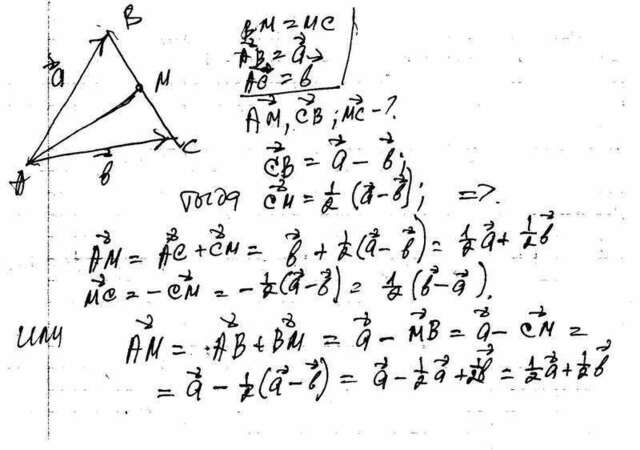 B
a⃗
M
A
b⃗
C
BM = MC
AB⃗ = a⃗
AC⃗ = b⃗
AM⃗, CB⃗; MC⃗ - ?
CB⃗ = a⃗ - b⃗;
тогда CM⃗ = 1/2 (a⃗ - b⃗); =>.
AM⃗ = AC⃗ + CM⃗ = b⃗ + 1/2(a⃗ - b⃗) = 1/2 a⃗ + 1/2 b⃗
MC⃗ = -CM⃗ = -1/2(a⃗ - b⃗) = 1/2 (b⃗ - a⃗).
или AM⃗ = AB⃗ + BM⃗ = a⃗ - MB⃗ = a⃗ - CM⃗ =
= a⃗ - 1/2(a⃗ - b⃗) = a⃗ - 1/2 a⃗ + 1/2 b⃗ = 1/2 a⃗ + 1/2 b⃗